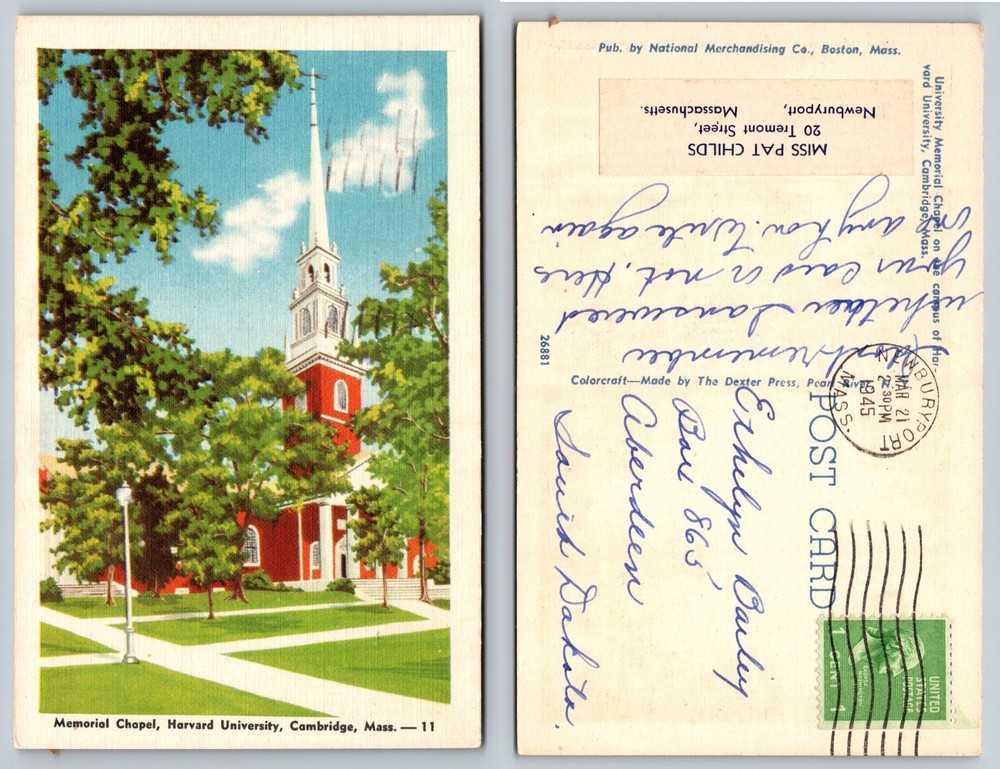 Memorial Chapel, Harvard University, Cambridge, Mass. — 11
Pub. by National Merchandising Co., Boston, Mass.
University Memorial Chapel on the campus of Har-
vard University, Cambridge, Mass.
MISS PAT CHILDS
20 Tremont Street,
Newburyport,
Massachusetts.
remember
whether I answered
your card or not. Here
is anyhow. Write again
26881
Colorcraft—Made by The Dexter Press, Pearl River, N.
POST CARD
NEWBURYPORT
MAR 21
2:30 PM
1945
MASS.
Ethelyn
Box 865
Aberdeen
South Dakota.
UNITED
STATES
POSTAGE
GEORGE
WASHINGTON
1 CENT 1